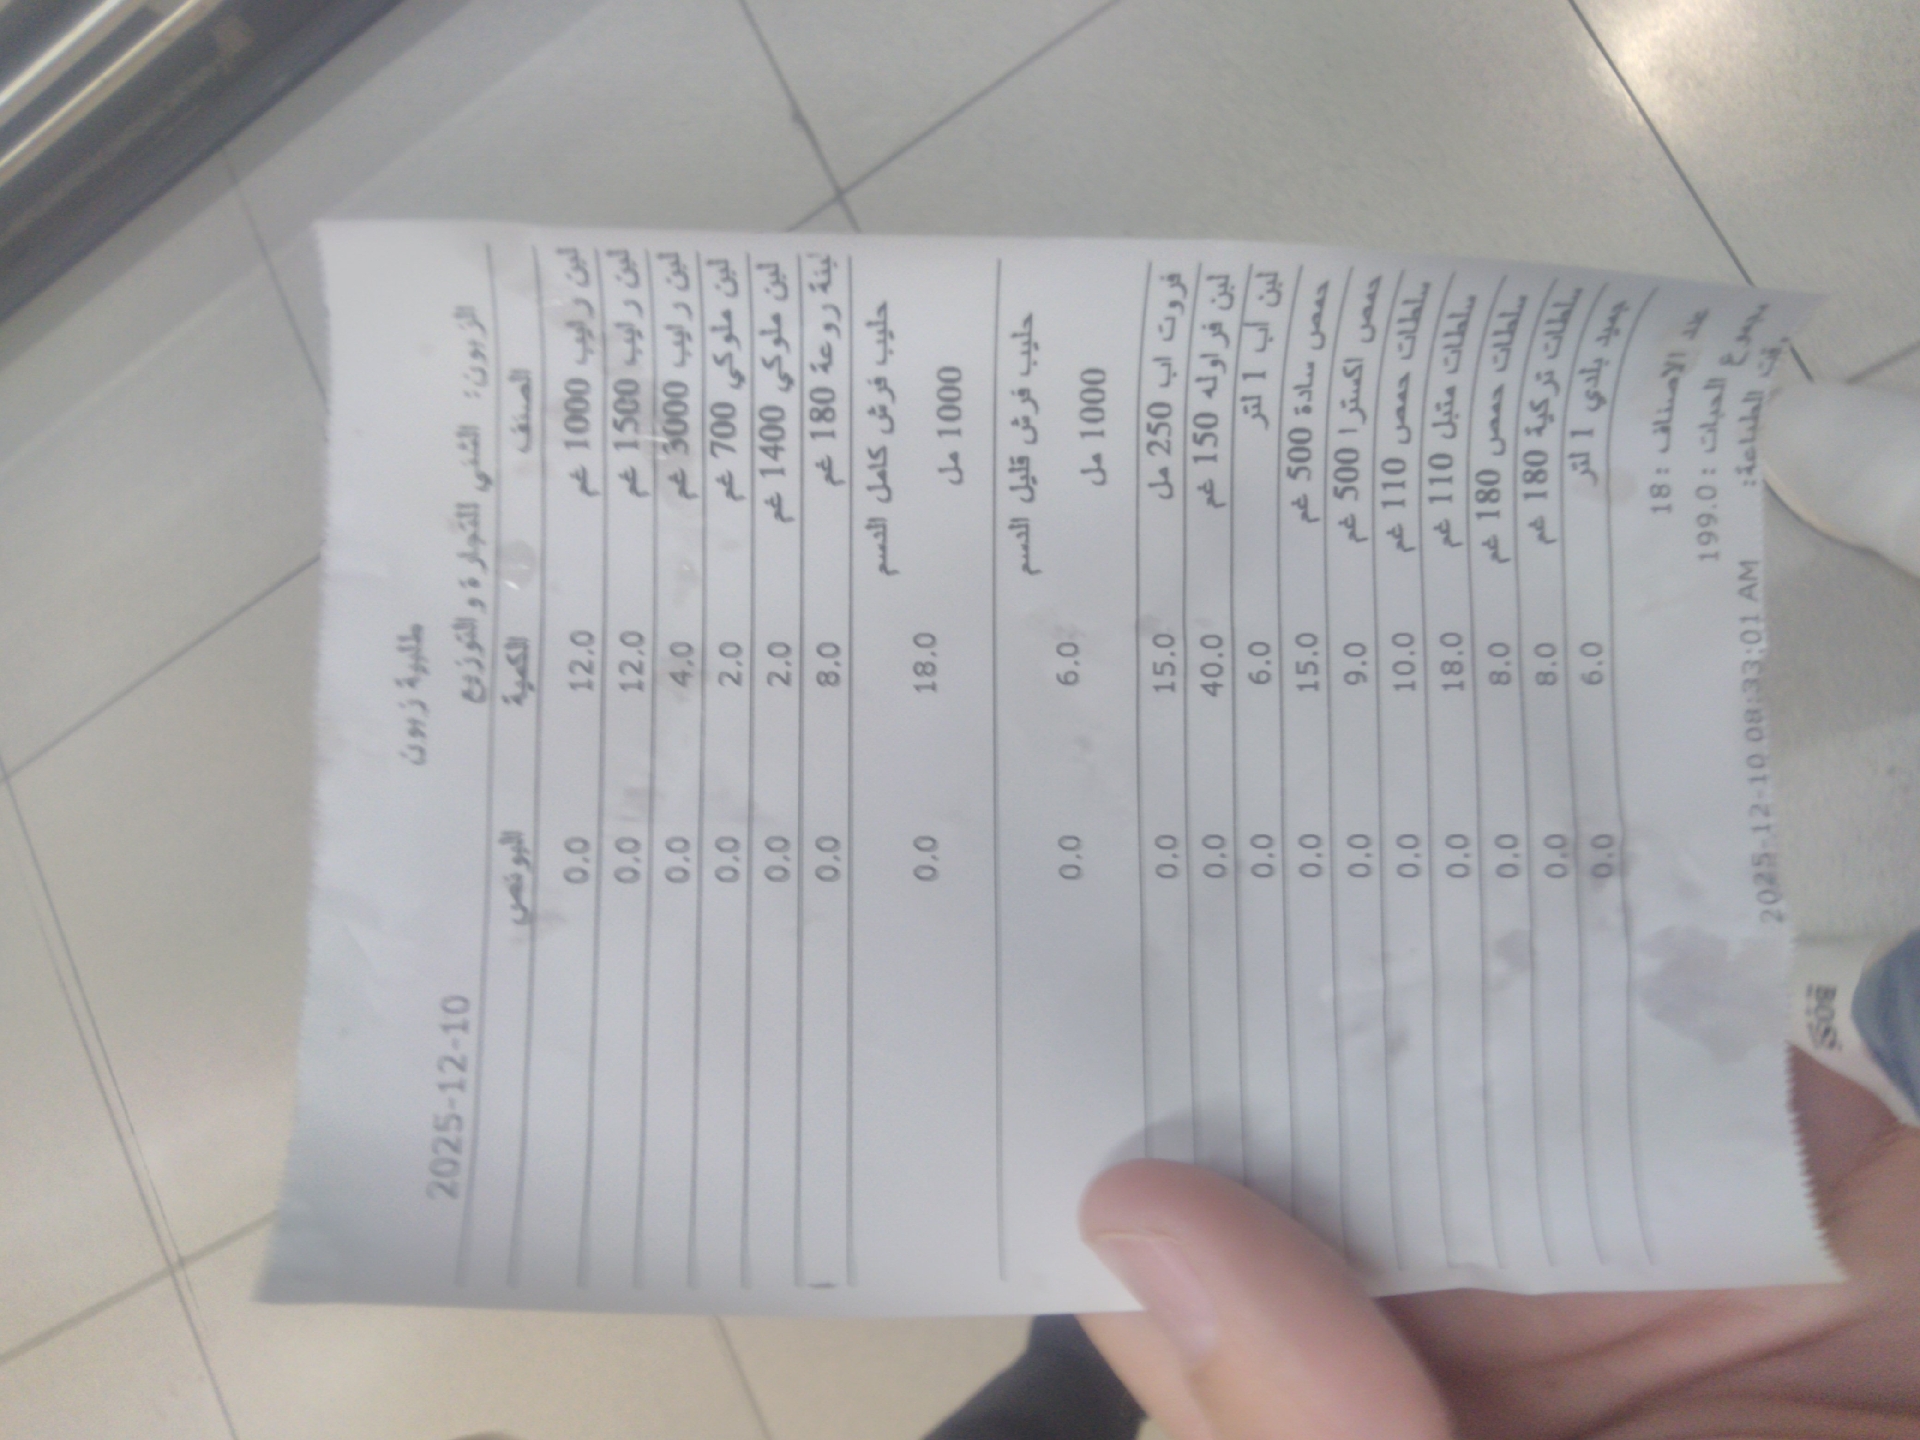 طلبية زبون
2025-12-10
الزبون: الشني للتجارة والتوزيع
الصنف الكمية البونص
لبن رايب 1000 غم 12.0 0.0
لبن رايب 1500 غم 12.0 0.0
لبن رايب 3000 غم 4.0 0.0
لبن ملوكي 700 غم 2.0 0.0
لبن ملوكي 1400 غم 2.0 0.0
لبنة روعة 180 غم 8.0 0.0
حليب فرش كامل الدسم
1000 مل 18.0 0.0
حليب فرش قليل الدسم
1000 مل 6.0 0.0
فروت اب 250 مل 15.0 0.0
لبن فراوله 150 غم 40.0 0.0
لبن اب 1 لتر 6.0 0.0
حمص سادة 500 غم 15.0 0.0
حمص اكسترا 500 غم 9.0 0.0
سلطات حمص 110 غم 10.0 0.0
سلطات متبل 110 غم 18.0 0.0
سلطات حمص 180 غم 8.0 0.0
سلطات تركية 180 غم 8.0 0.0
جميد بلدي 1 لتر 6.0 0.0
عدد الاصناف: 18
مجموع الحبات: 199.0
وقت الطباعة: 2025-12-10 08:33:01 AM
BOSS